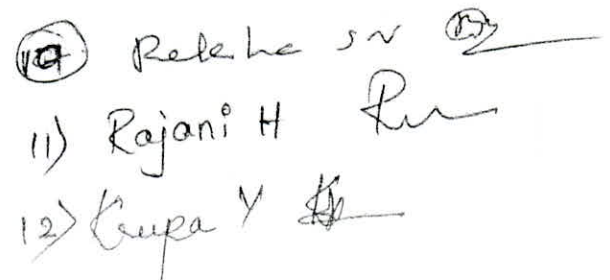 10 Rekha SN
11) Rajani H
12) Krupa Y